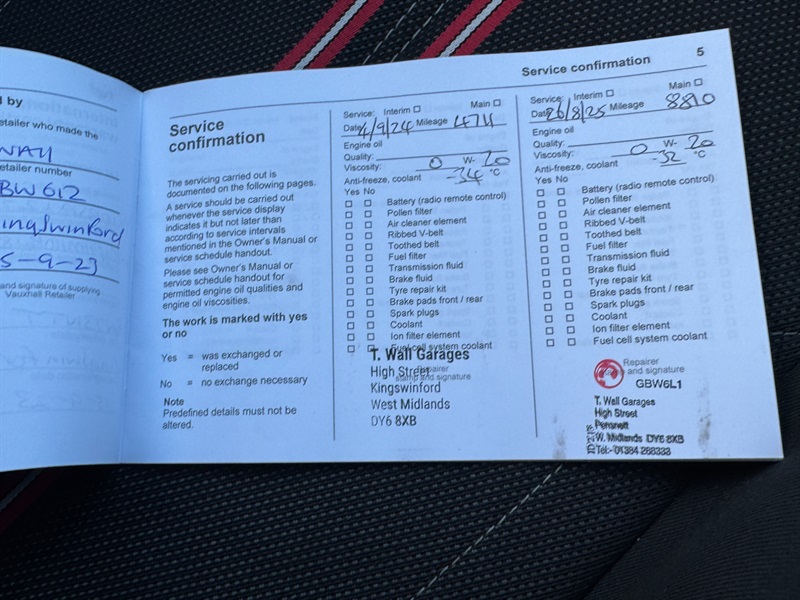 by
etailer who made the
WALL
etailer number
BW612
ingswinford
5-9-23
nd signature of supplying
Vauxhall Retailer
Service
confirmation
The servicing carried out is
documented on the following pages.
A service should be carried out
whenever the service display
indicates it but not later than
according to service intervals
mentioned in the Owner's Manual or
service schedule handout.
Please see Owner's Manual or
service schedule handout for
permitted engine oil qualities and
engine oil viscosities.
The work is marked with yes
or no
Yes = was exchanged or
replaced
No = no exchange necessary
Note
Predefined details must not be
altered.
Service: Interim Main
Date 4/9/24 Mileage 4711
Engine oil
Quality:
Viscosity: 0 W- 20
Anti-freeze, coolant -34 °C
Yes No
Battery (radio remote control)
Pollen filter
Air cleaner element
Ribbed V-belt
Toothed belt
Fuel filter
Transmission fluid
Brake fluid
Tyre repair kit
Brake pads front / rear
Spark plugs
Coolant
Ion filter element
Fuel cell system coolant
Repairer
stamp and signature
T. Wall Garages
High Street
Kingswinford
West Midlands
DY6 8XB
Service confirmation 5
Service: Interim Main
Date 26/8/25 Mileage 8810
Engine oil
Quality:
Viscosity: 0 W- 20
Anti-freeze, coolant -32 °C
Yes No
Battery (radio remote control)
Pollen filter
Air cleaner element
Ribbed V-belt
Toothed belt
Fuel filter
Transmission fluid
Brake fluid
Tyre repair kit
Brake pads front / rear
Spark plugs
Coolant
Ion filter element
Fuel cell system coolant
Repairer
and signature
GBW6L1
T. Wall Garages
High Street
Pensnett
W. Midlands DY6 8XB
Tel:- 01384 288333